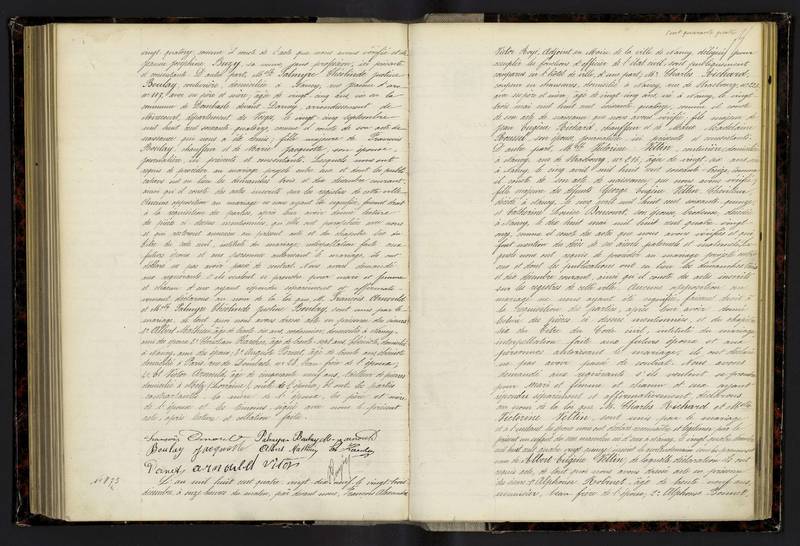 vingt quatorze, comme il conste de l'acte que nous avons vérifié et de
Jeanne Joséphine Buzy, sa veuve, sans profession, ici présente
et consentante. D'autre part, Melle Palmyre Théolinde Justine
Boulay, couturière, domiciliée à Nancy, rue
avec ses père et mère, âgée de vingt cinq ans, née en la
commune de Dombasle devant Darney, arrondissement de
Mirecourt, département des Vosges, le vingt cinq septembre
mil huit cent soixante quatorze, comme il conste de son acte de
naissance qui nous a été remis; fille majeure de François
Boulay, chauffeur et de Marie Jacquotte, son épouse,
journalière, ici présents et consentants. Lesquels nous ont
requis de procéder au mariage projeté entre eux et dont les publi
cations ont eu lieu les dimanches trois et dix décembre courant,
ainsi qu'il conste des actes inscrits sur les registres de cette ville.
Aucune opposition au mariage ne nous ayant été signifiée, faisant droit
à la réquisition des parties, après leur avoir donné lecture
des pièces ci dessus mentionnées, qui
et qui resteront annexées au présent acte et du chapitre six du
titre du code civil, intitulé du mariage, interpellation faite aux
futurs époux et aux personnes autorisant le mariage, ils ont
déclaré ne pas avoir passé de contrat. Nous avons demandé
aux requérants s'ils veulent se prendre pour mari et femme
et chacun d'eux ayant répondu séparément et affirmati
vement, déclarons au nom de la loi que M. François Arnould
et Melle Palmyre Théolinde Justine Boulay, sont unis par le
mariage. De tout quoi nous avons dressé acte en présence des sieurs
1° Albert Mathieu, âgé de trente six ans, cordonnier, domicilié à Nancy,
ami des époux; 2° Christian Karcher, âgé de trente sept ans, domicilié
à Nancy, ami des époux; 3° Auguste Danet, âgé de trente ans,
domicilié à Paris, rue de Lombards, n° 23, beau frère de l'épouse;
4° Victor Arnould, âgé de cinquante neuf ans, tailleur de pierres
domicilié à Metz (Lorraine), oncle de l'époux, Et ont les parties
contractantes, la mère de l'époux, les père et mère
de l'épouse et les témoins, signé avec nous le présent
acte, après lecture et collation faite.
François Arnould Palmyre Boulay
Boulay Jacquotte Albert Mathieu Ch. Karcher
Danet Arnould Victor
N° 873
L'an mil huit cent quatre vingt dix neuf, le vingt trois
décembre, à onze heures du matin, par devant nous, François Alexandre
Cent quarante quatre
Victor Roys, Adjoint au Maire de la ville de Nancy, délégué pour
remplir les fonctions d'officier de l'état civil, sont publiquement
comparus en l'hôtel de ville, d'une part, Mr Charles Richard,
coupeur en chaussures, domicilié à Nancy, rue de Strasbourg,
avec ses père et mère, âgé de vingt cinq ans, né à Nancy, le vingt
trois mai mil huit cent soixante quatorze, comme il conste
de son acte de naissance que nous avons vérifié, fils majeur de
Jean Eugène Richard, chauffeur et de Marie Madeleine
son épouse, ici présents et consentants.
D'autre part, Melle Victorine Vellin, couturière, domiciliée
à Nancy, rue de Strasbourg, n° 216, âgée de vingt
à Nancy, le cinq avril mil huit cent soixante
il conste de son acte de naissance que nous avons vérifié,
fille majeure des défunts George Eugène Vellin,
décédé à Nancy, le cinq avril mil huit cent soixante quinze,
et Catherine Louise son épouse, décédée
à Nancy, le dix huit mai mil huit cent quatre vingt
onze, comme il conste des actes que nous avons vérifiés et qui
font mention du décès de ses aïeuls paternels et maternels. Les
quels nous ont requis de procéder au mariage projeté entre
eux et dont les publications ont eu lieu les dimanches trois
et dix décembre courant, ainsi qu'il conste des actes inscrits
sur les registres de cette ville. Aucune opposition au
mariage ne nous ayant été signifiée, faisant droit à
la réquisition des parties, après leur avoir donné
lecture des pièces ci dessus mentionnées, et du chapitre
six du titre du Code civil, intitulé du mariage,
interpellation faite aux futurs époux et aux
personnes autorisant le mariage, ils ont déclaré
ne pas avoir passé de contrat. Nous avons
demandé aux requérants s'ils veulent se prendre
pour mari et femme et chacun d'eux ayant
répondu séparément et affirmativement, déclarons
au nom de la loi que M. Charles Richard et Melle
Victorine Vellin, sont unis par le mariage
et à l'instant les époux nous ont déclaré reconnaître et légitimer par le
présent un enfant du sexe masculin né d'eux à Nancy, le vingt quatre
mil huit cent quatre vingt
noms de Albert Eugène Vellin, de laquelle déclaration ils ont
requis acte, de tout quoi nous avons dressé acte en présence
des sieurs 1° Alphonse Robinet, âgé de trente neuf ans,
menuisier, beau frère de l'épouse; 2° Alphonse